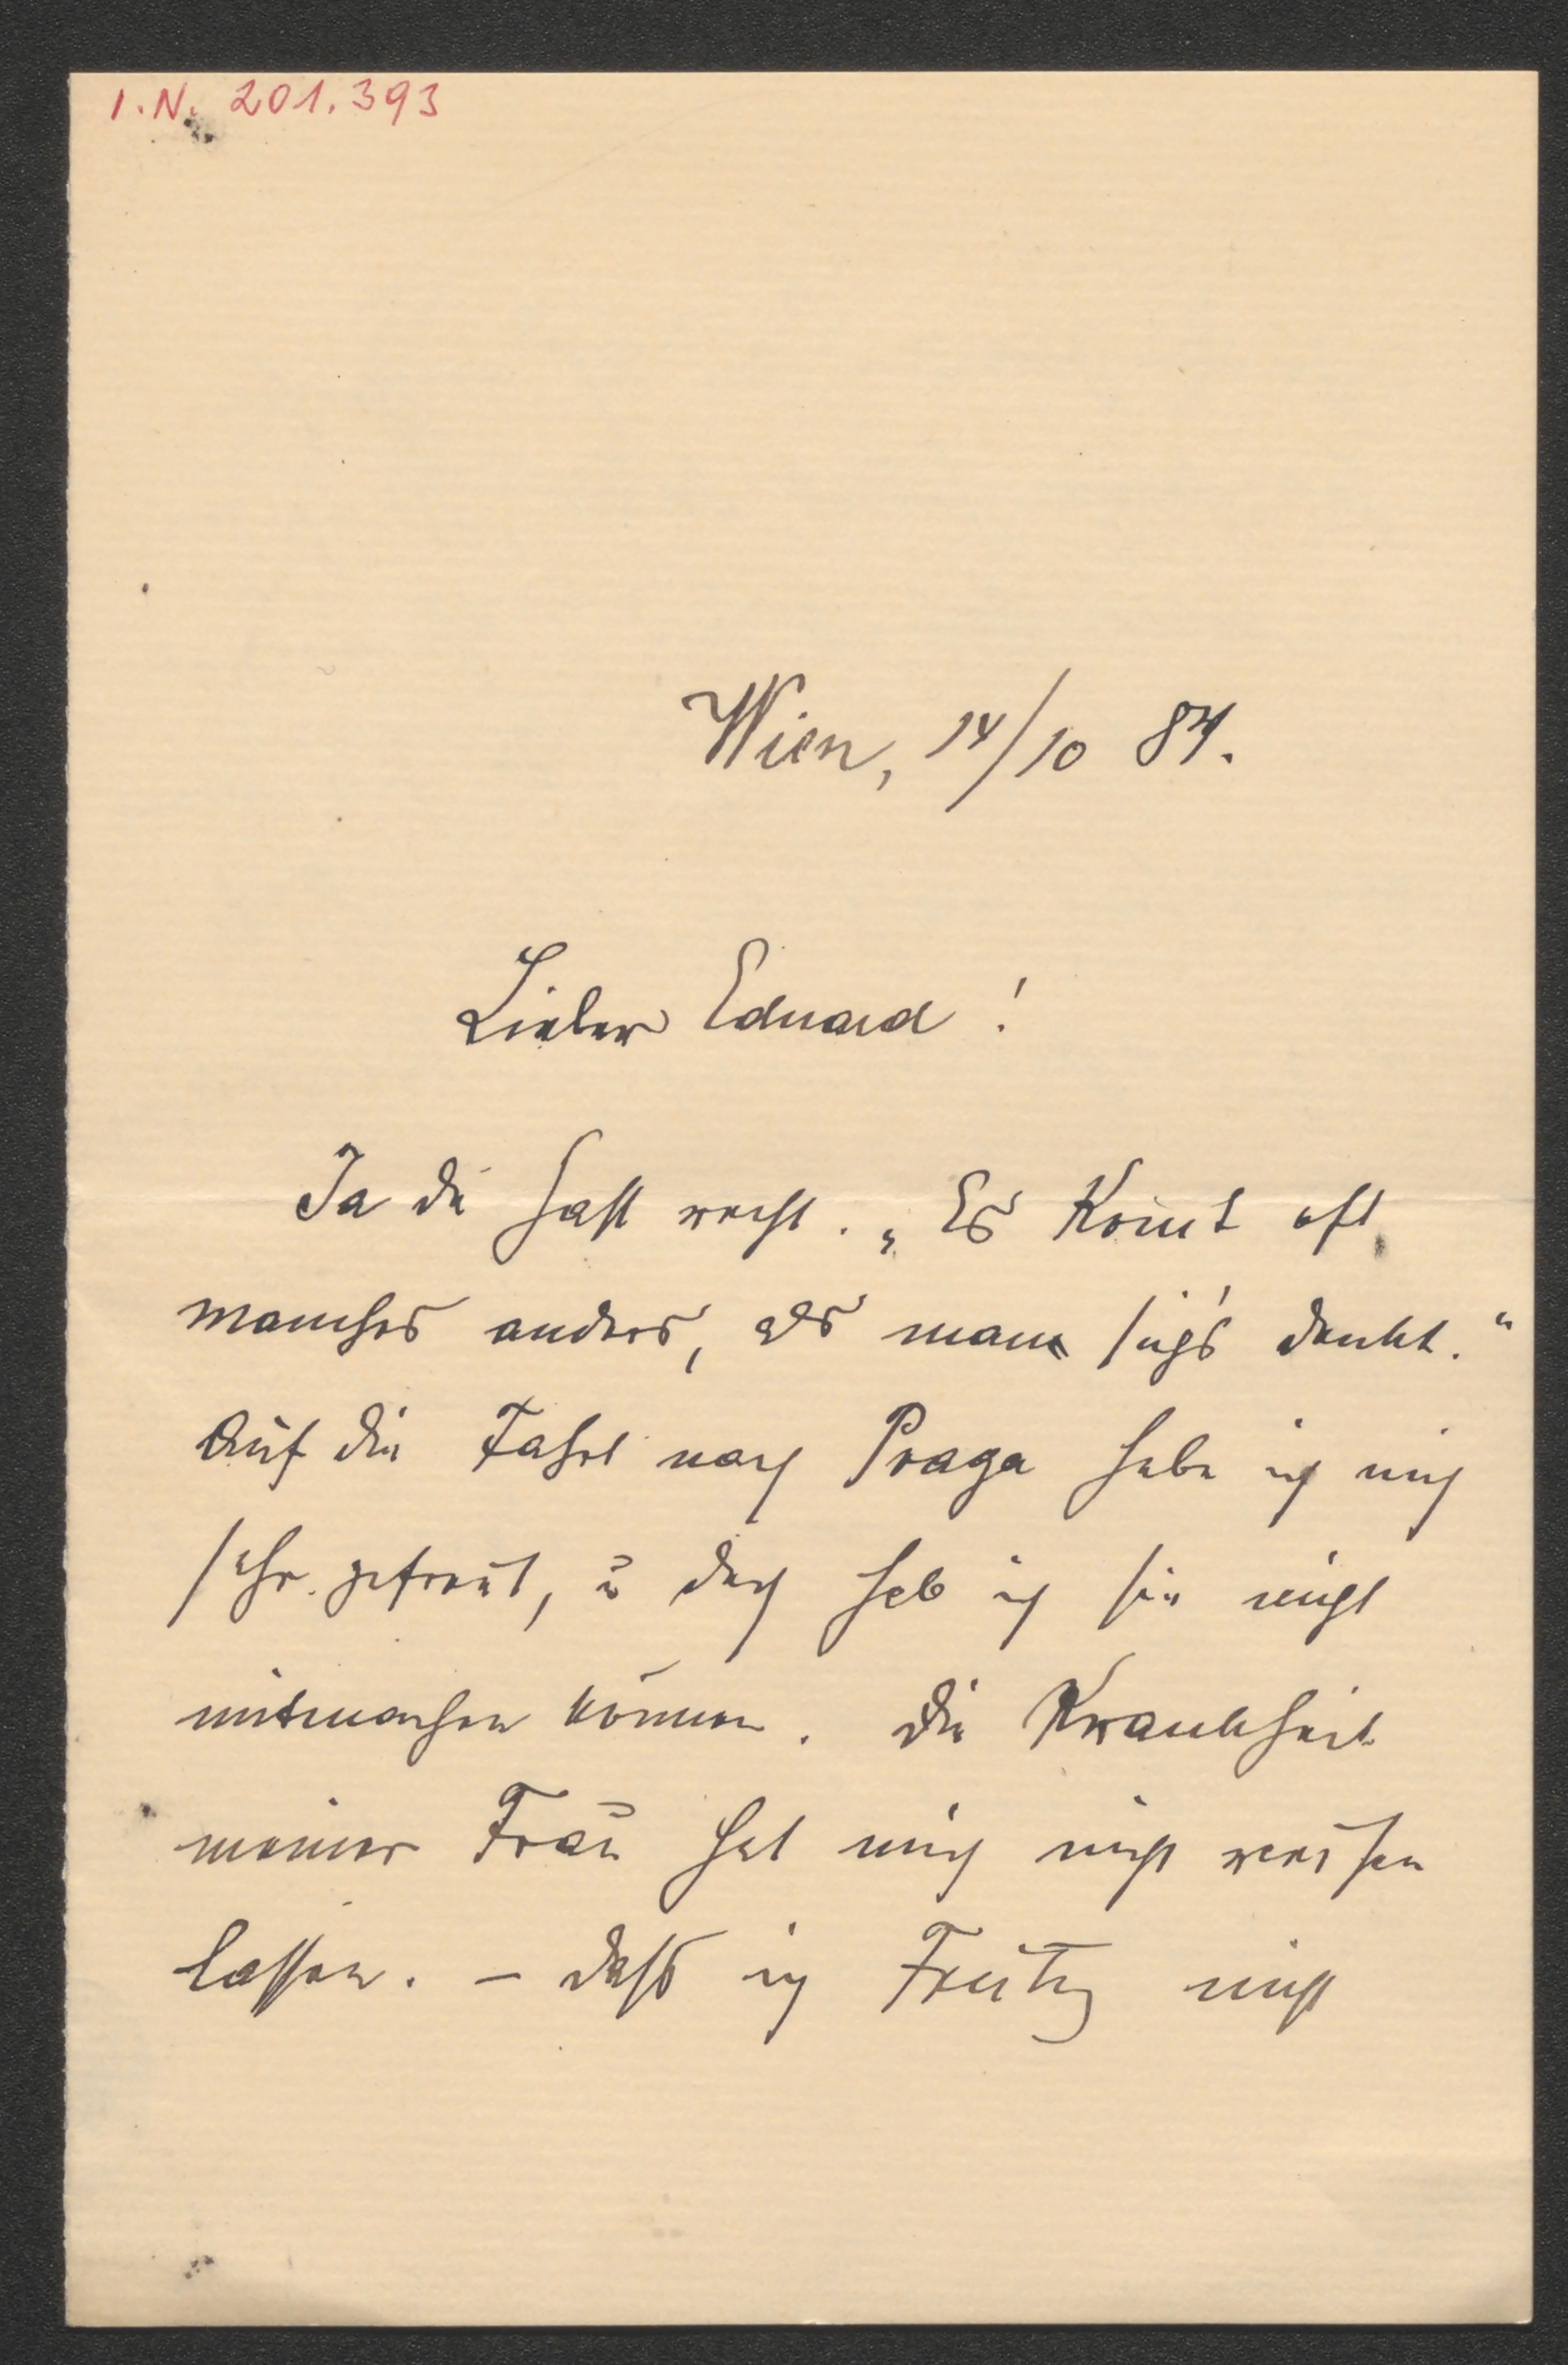 I.N. 201.393
Wien, 14/10 84.
Lieber Eduard!
Ja du hast recht. „Es kom̅t oft
manches anders, als man sichs denkt.“
Auf die Fahrt nach Praga habe ich mich
sehr gefreut, u doch hab ich sie nicht
mitmachen können. Die Krankheit
meiner Frau hat mich nicht reisen
lassen. – daß ich nicht